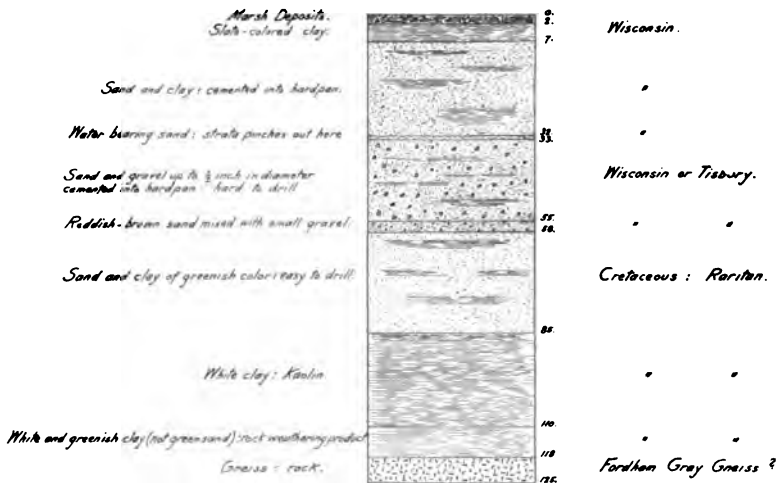 Marsh Deposits.
Slate-colored clay.
Sand and clay: cemented into hardpan.
Water bearing sand: strata pinches out here
Sand and gravel up to ½ inch in diameter
cemented into hardpan hard to drill
Reddish-brown sand mixed with small gravel.
Sand and clay of greenish color: easy to drill.
White clay: Kaolin.
White and greenish clay (not greensand): rock weathering product
Gneiss - rock.
0.
2.
7.
33.
55.
58.
85.
110.
118
125.
Wisconsin.
"
"
Wisconsin or Tisbury.
" "
Cretaceous: Raritan.
" "
" "
Fordham Gray Gneiss ?